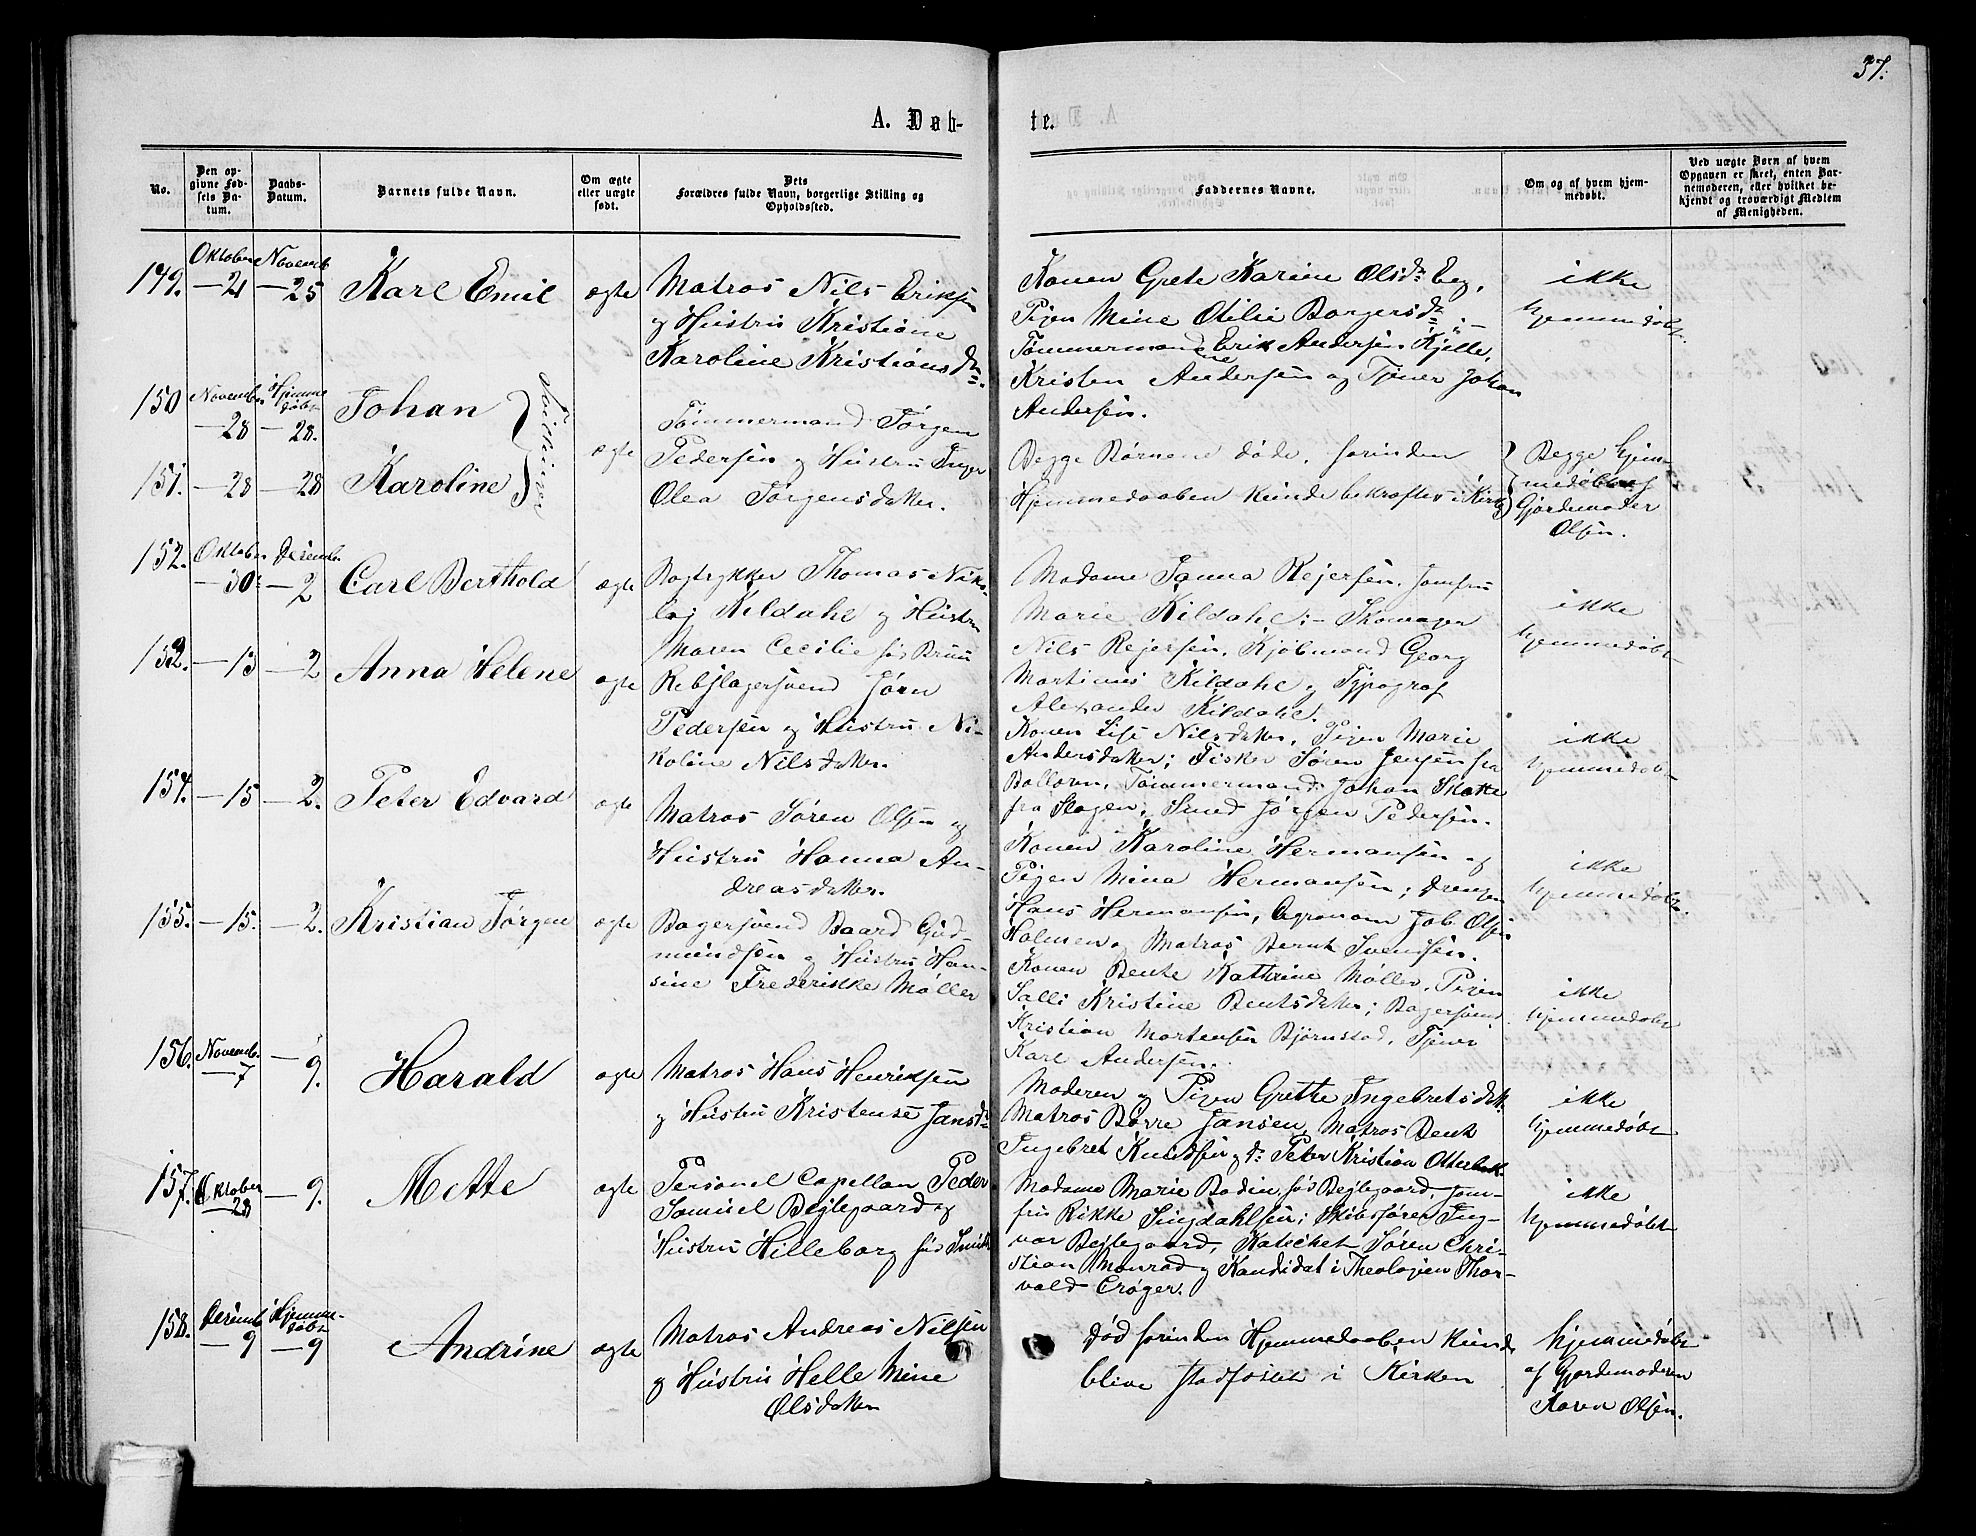 37.
A. Døb-
te.
No.
Den op-
givne Fød-
sels Da-
tum.
Daabs-
Datum.
Barnets fulde Navn.
Om ægte
eller uægte
født.
Dets
Forældres fulde Navn, borgerlige Stilling og
Opholdssted.
Faddernes Navne.
Om og af hvem hjem-
medøbt.
Ved uægte Børn af hvem
Opgaven er skeet, enten Bar-
nemoderen, eller hvilket be-
kjendt og troværdigt Medlem
af Menigheden.
149.
Oktober
Novemb
— 25
Karl Emil
ægte
Matros Nils Eriksen
og Hustru Kristiane
Karoline Kristiansdr.
Konen Grete Karine Olsdr
Pigen Mine Otilie Borgersdr
Tømmermand Erik Andersen Kjelle,
Kristen Andersen og Tjener Johan
Andersen.
ikke
hjemmedøbt.
150
November
— 28
Hjemme
døbt
— 28.
Johan
151.
— 28
— 28
Karoline
Tvillinger
ægte
Tømmermand Jørgen
Pedersen og Hustru Inger
Olea Jørgensdatter.
Begge Børnene døde, forinden
Hjemmedaaben kunde bekræftes i Kirk
Begge hjem-
medøbt af
Gjordemoder
Olsen.
152.
Oktober
— 30
Desemb.
— 2
Carl Berthold
ægte
Bogtrykker Thomas Niko-
laj Kildahl og Hustru
Maren Cecilie fød Bruu
Madame Janna Rejersen, Jomfru
Marie Kildahl; — Skomager
Nils Rejersen, Kjøbmand Georg
Martinus Kildahl og Typograf
Alexander Kildahl.
ikke
hjemmedøbt
153.
— 13
— 2
Anna Helene
ægte
Rebslagersvend Jørn
Pedersen og Hustru Ni-
koline Nilsdatter.
Konen Lise Nilsdatter, Pigen Marie
Andersdatter; Fisker Søren Jensen fra
Bollærn, Tømmermand Johan Skatte
fra Slagen; Smed Jørgen Pedersen.
ikke
hjemmedøbt
154.
— 15
— 2.
Peter Edvard
ægte
Matros Søren Olsen og
Hustru Hanna An-
dreasdatter.
Konen Karoline Hermansen og
Pigen Mina Hermansen; Drengen
Hans Hermansen, Agronom Job. Olsen
Holmen og Matros Bernt Svendsen.
ikke
hjemmedøbt.
155.
— 15.
— 2.
Kristian Jørgen
ægte
Bagersvend Baard Gud-
mundsen og Hustru Han-
sine Frederikke Møller
Konen Bente Kathrine Møller, Pigen
Salli Kristine Bentsdatter; Bagersvend
Kristian Mortensen Bjørnstad, Tjener
Karl Andersen.
ikke
hjemmedøbt
156.
Novemb.
— 7
— 9.
Harald
ægte
Matros Hans Henriksen
og Hustru Kristense Jansdr
Moderen og Pigen Grethe Ingebretsdtt.
Matros Børre Jansen, Matros Bent
Ingebret Knudsen og dr Peter Kristian Otterbek.
ikke
hjemmedøbt
157.
Oktober
28
— 9.
Mette
ægte
Personel Capellan Peder
Samuel Bejlegaard og
Hustru Hilleborg fød Smith
Madame Marie Bodin fød Bejlegaard, Jom-
fru Rikke Syngdahlsen; Skibsfører Ing-
var Bejlegaard, Kateket Søren Chri-
stian Monrad og Kandidat i Theologien Thor-
vald Crøger.
ikke
hjemmedøbt
158.
Desemb
— 9
Hjemme-
døbt
— 9
Andrine
ægte
Matros Andreas Nilsen
og Hustru Helle Mine
Olsdatter
Død forinden Hjemmedaaben kunde
blive stadfæstet i Kirken
hjemmedøbt
af Gjordemoderen
Karen Olsen.